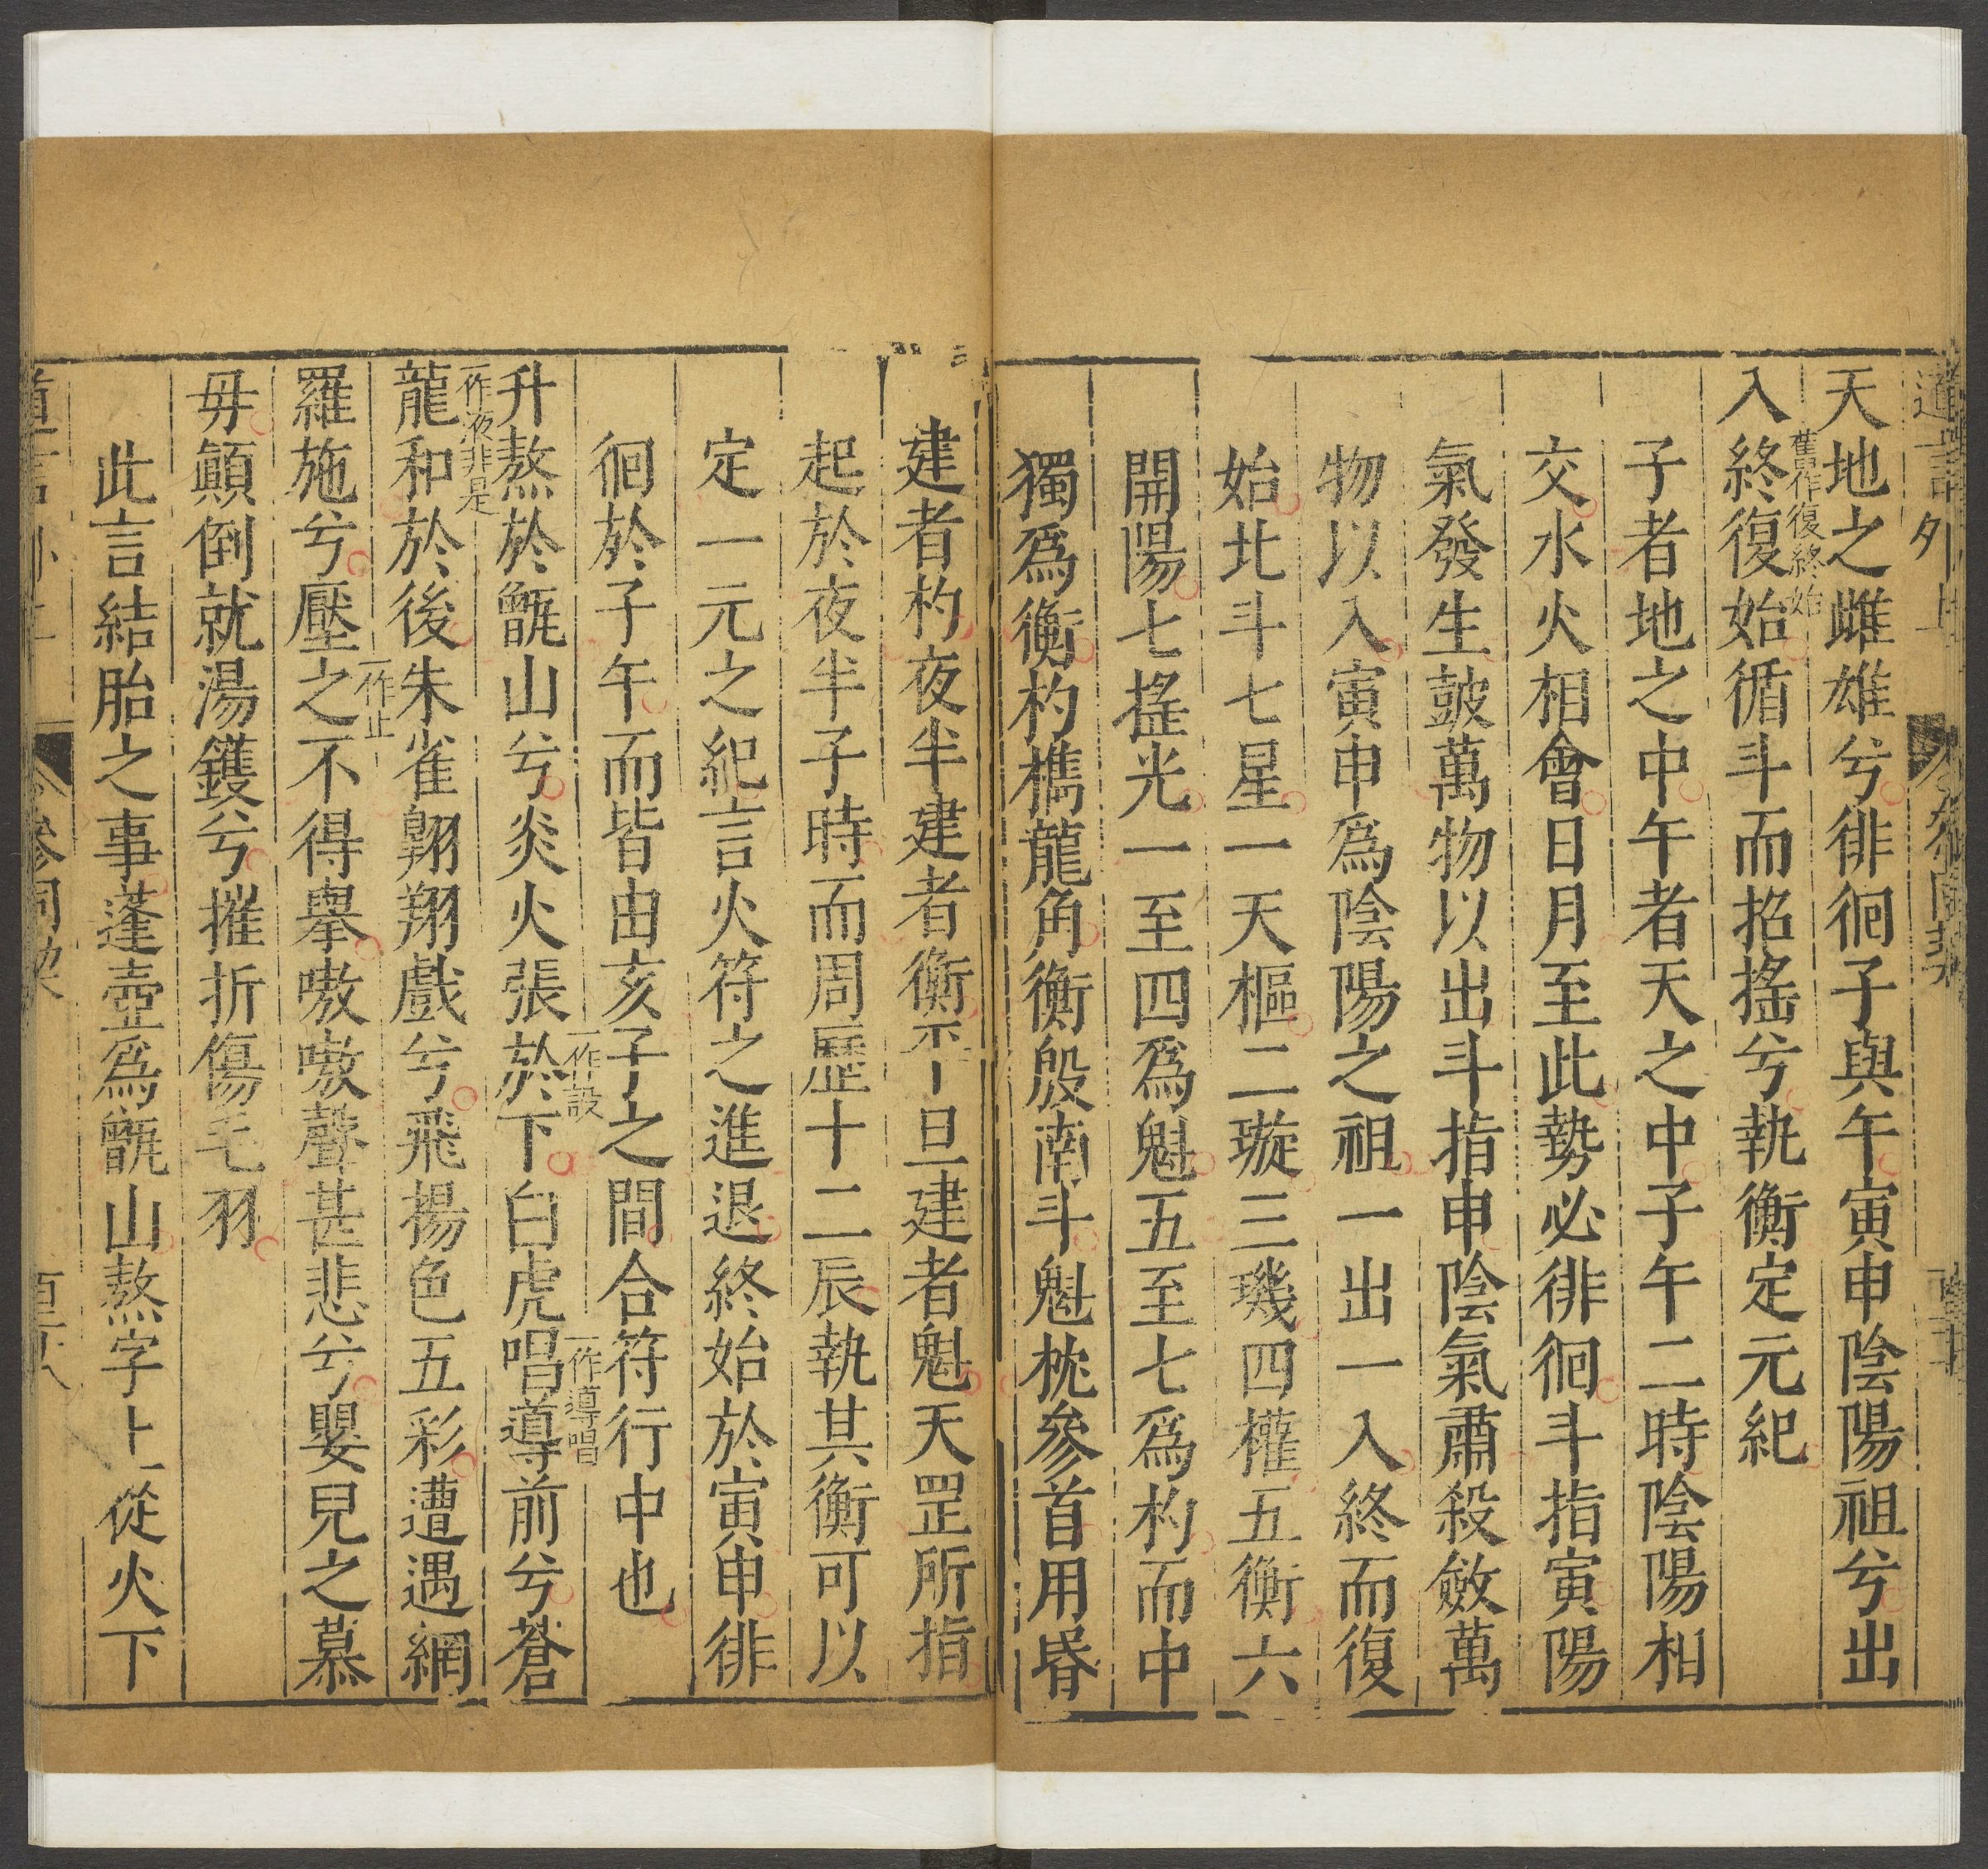 道言外
天地之雌雄兮徘徊子與午寅申陰陽祖兮出
入終復始循斗而招搖兮執衡定元紀
舊作復終始
子者地之中午者天之中子午二時陰陽相
交水火相會日月至此勢必徘徊斗指寅陽
氣發生鼓萬物以出斗指申陰氣肅殺斂萬
物以入寅申爲陰陽之祖一出一入終而復
始北斗七星一天樞二璇三璣四權五衡六
開陽七搖光一至四爲魁五至七爲杓而中
獨爲衡杓檇龍角衡殷南斗魁枕參首用昏
建者杓夜半建者衡平旦建者魁天罡所指
起於夜半子時而周歷十二辰執其衡可以
定一元之紀言火符之進退終始於寅申徘
徊於子午而皆由亥子之間合符行中也
升熬於甑山兮炎火張於下白虎唱導前兮蒼
一作設
一作導唱
龍和於後朱雀翱翔戲兮飛揚色五彩遭遇網
一作液非是
羅施兮壓之不得舉嗷嗷聲甚悲兮嬰兒之慕
一作止
毋顛倒就湯鑊兮摧折傷毛羽
此言結胎之事蓬壺爲甑山熬字上從火下
參同契